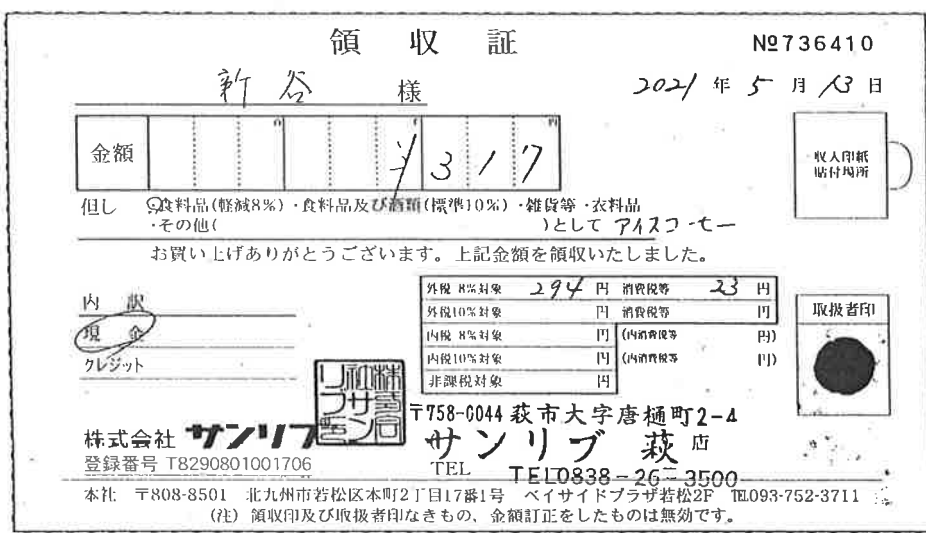 領収証
№736410
新谷 様
2021年5月13日
金額 百 千 円
¥317
収入印紙
貼付場所
但し ・食料品(軽減8%)・食料品及び酒類(標準10%)・雑貨等・衣料品
・その他( )として アイスコーヒー
お買い上げありがとうございます。上記金額を領収いたしました。
内訳
現金
クレジット
外税 8%対象 294 円 消費税等 23 円
外税10%対象 円 消費税等 円
内税 8%対象 円 (内消費税等 円)
内税10%対象 円 (内消費税等 円)
非課税対象 円
取扱者印
株式会社サンリブ
株式会社サンリブ
登録番号 T8290801001706
〒758-0044 萩市大字唐樋町2-4
サンリブ 萩 店
TEL TEL0838-26-3500
本社 〒808-8501 北九州市若松区本町2丁目17番1号 ベイサイドプラザ若松2F TEL093-752-3711
(注) 領収印及び取扱者印なきもの、金額訂正をしたものは無効です。